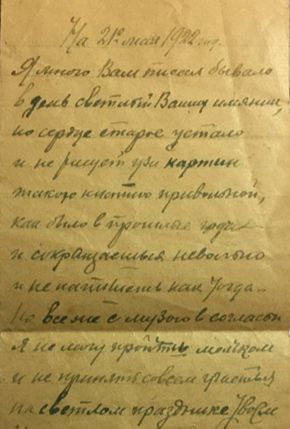 На 21е мая 1922 год.
Я много Вам писал бывало
в день светлый Ваших имянин,
но сердце старое устало
и не рисует уж картин
такою кистью привольной,
как было в прошлые года
и сокращаешься невольно
и не напишешь как тогда.
Но все же с музою в согласьи
Я не могу пройтить молчком
и не принять совсем участья
на светлом празднике